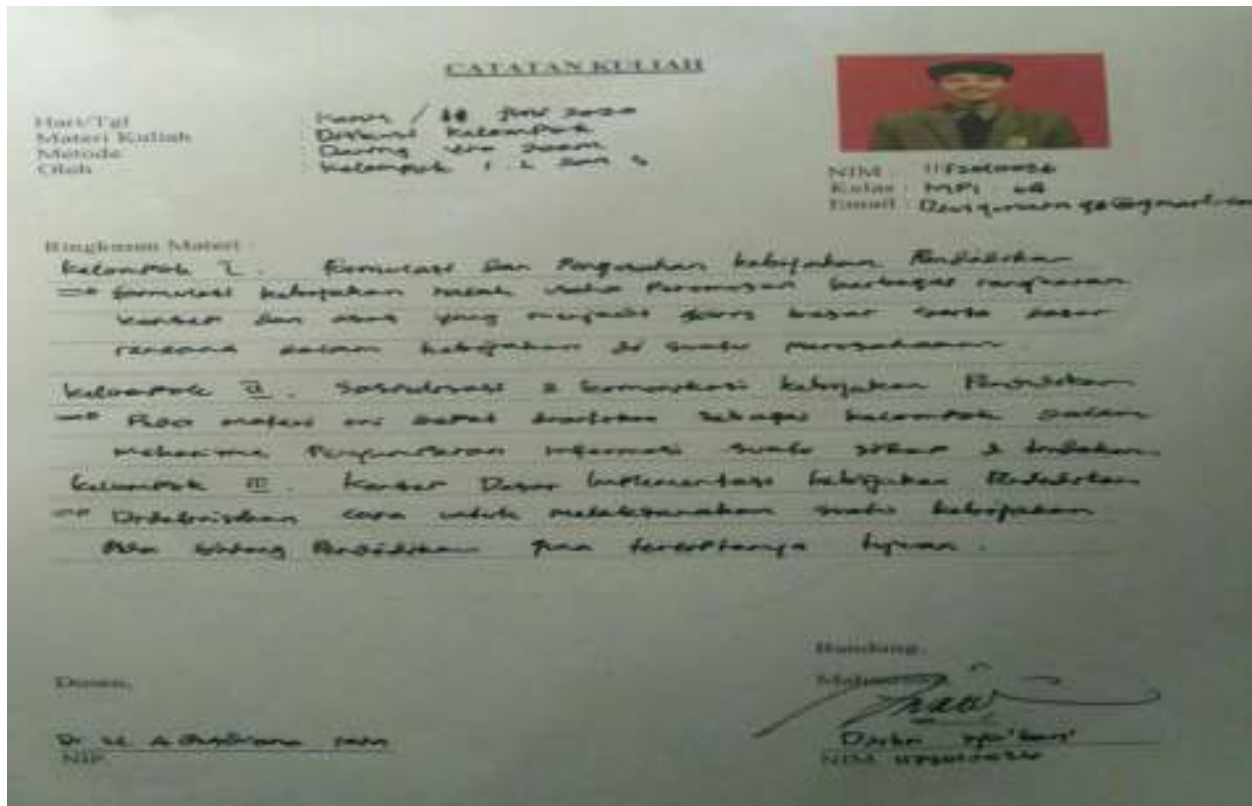 CATATAN KULIAH
Hari/Tgl : Kamis / Juni 2020
Materi Kuliah : Diskusi Kelompok
Metode : Daring via Zoom
Oleh : Kelompok 1. 2 dan 3
NIM :
Kelas : MPI 6B
Email :
Ringkasan Materi :
Kelompok I. Formulasi dan Pengesahan kebijakan Pendidikan
formulasi kebijakan ialah usaha Perumusan berbagai rangkaian
konsep dan asas yang menjadi garis besar serta dasar
rencana dalam kebijakan di suatu perusahaan
Kelompok II. Sosialisasi & komunikasi kebijakan Pendidikan
Pada materi ini dapat diartikan sebagai kelompok dalam
mekanisme informasi suatu sikap & tindakan.
Kelompok III. Konsep Dasar Implementasi kebijakan Pendidikan
Didefinisikan cara untuk melaksanakan suatu kebijakan
bidang Pendidikan terciptanya tujuan.
Bandung,
Dosen,
Mahasiswa
Dr. H. A
NIP
NIM